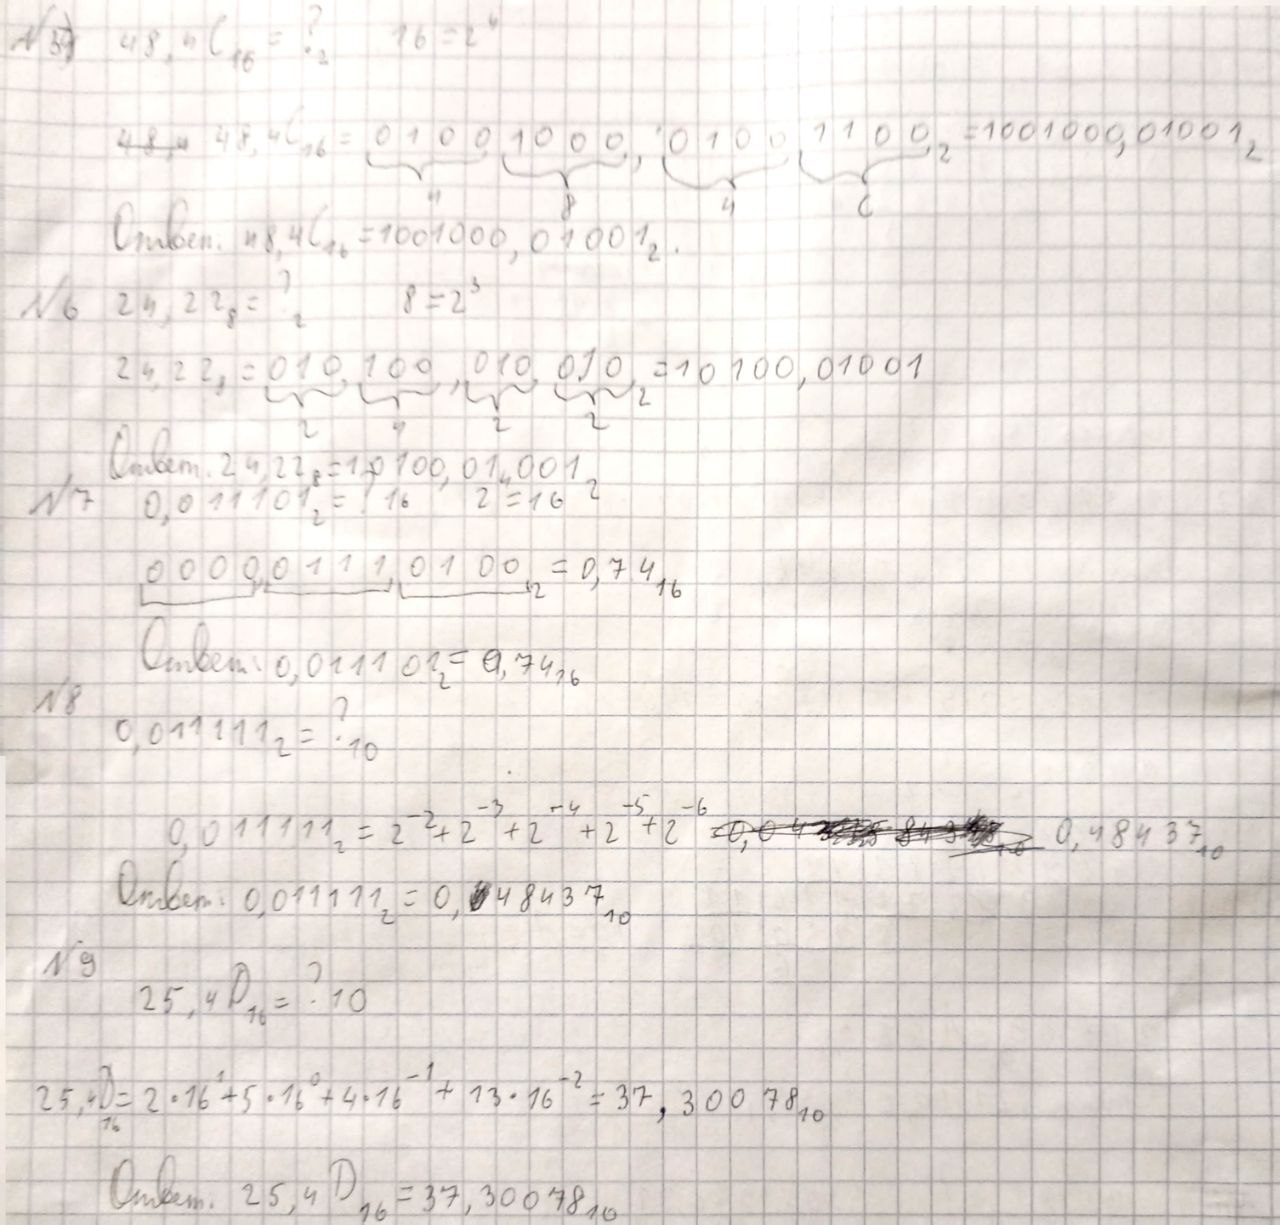 №5) 48,4C₁₆ = ?₂ 16 = 2⁴
48,4C₁₆ = 0100 1000, 0100 1100₂ = 1001000,01001₂
4 8 4 C
Ответ. 48,4C₁₆ = 1001000,01001₂.
№6 24,22₈ = ?₂ 8 = 2³
24,22₈ = 010 100, 010 010₂ = 10100,01001
2 4 2 2
Ответ. 24,22₈ = 10100,01001₂
№7 0,011101₂ = ?16 2⁴ = 16
0000,0111,0100₂ = 0,74₁₆
Ответ: 0,011101₂ = 0,74₁₆
№8
0,011111₂ = ?₁₀
0,011111₂ = 2⁻² + 2⁻³ + 2⁻⁴ + 2⁻⁵ + 2⁻⁶ = 0,48437₁₀
Ответ: 0,011111₂ = 0,48437₁₀
№9
25,4D₁₆ = ?10
25,4D₁₆ = 2·16¹ + 5·16⁰ + 4·16⁻¹ + 13·16⁻² = 37,30078₁₀
Ответ. 25,4D₁₆ = 37,30078₁₀